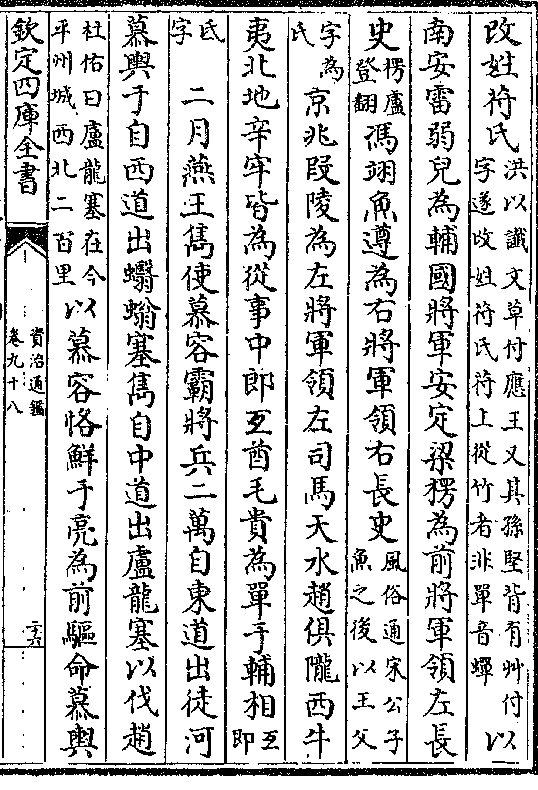 改姓苻氏洪以讖文草付應王又其孫堅背有艸付字遂改姓苻氏苻上從竹者非單音蟬以
南安雷弱兒為輔國將軍安定梁楞為前將軍領左長
史楞盧登翻馮翊魚遵為右將軍領右長史風俗通宋公子魚之後以王父
字為氏京兆段陵為左將軍領左司馬天水趙俱隴西牛
夷北地辛牢皆為從事中郎氐酋毛貴為單于輔相氐即
氐字 二月燕王儁使慕容霸將兵二萬自東道出徒河
慕輿于自西道出蠮螉塞儁自中道出盧龍塞以伐趙
杜佑曰盧龍塞在今平州城西北二百里以慕容恪鮮于亮為前驅命慕輿
欽定四庫全書
資治通鑑
卷九十八
二六